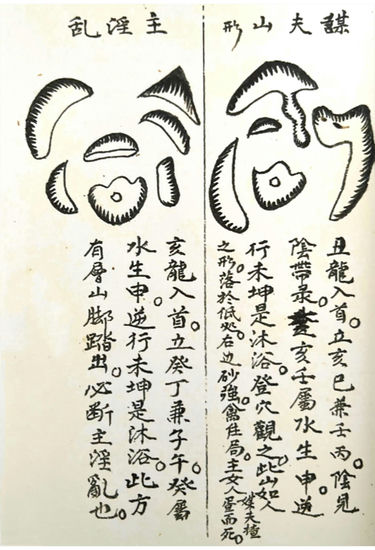 謀夫山形
丑龍入首。立亥巳兼壬丙。陰見
陰帶彔。亥壬屬水生申。逆
行未坤是沐浴。登穴觀之。此山如人
之形。落於低処。右边砂強。禽住局。主女人
夫
蛋而死。
主淫乱
亥龍入首。立癸丁兼子午。癸屬
水生申。逆行未坤是沐浴。此方
有層山脚踏出。必断主淫亂也。